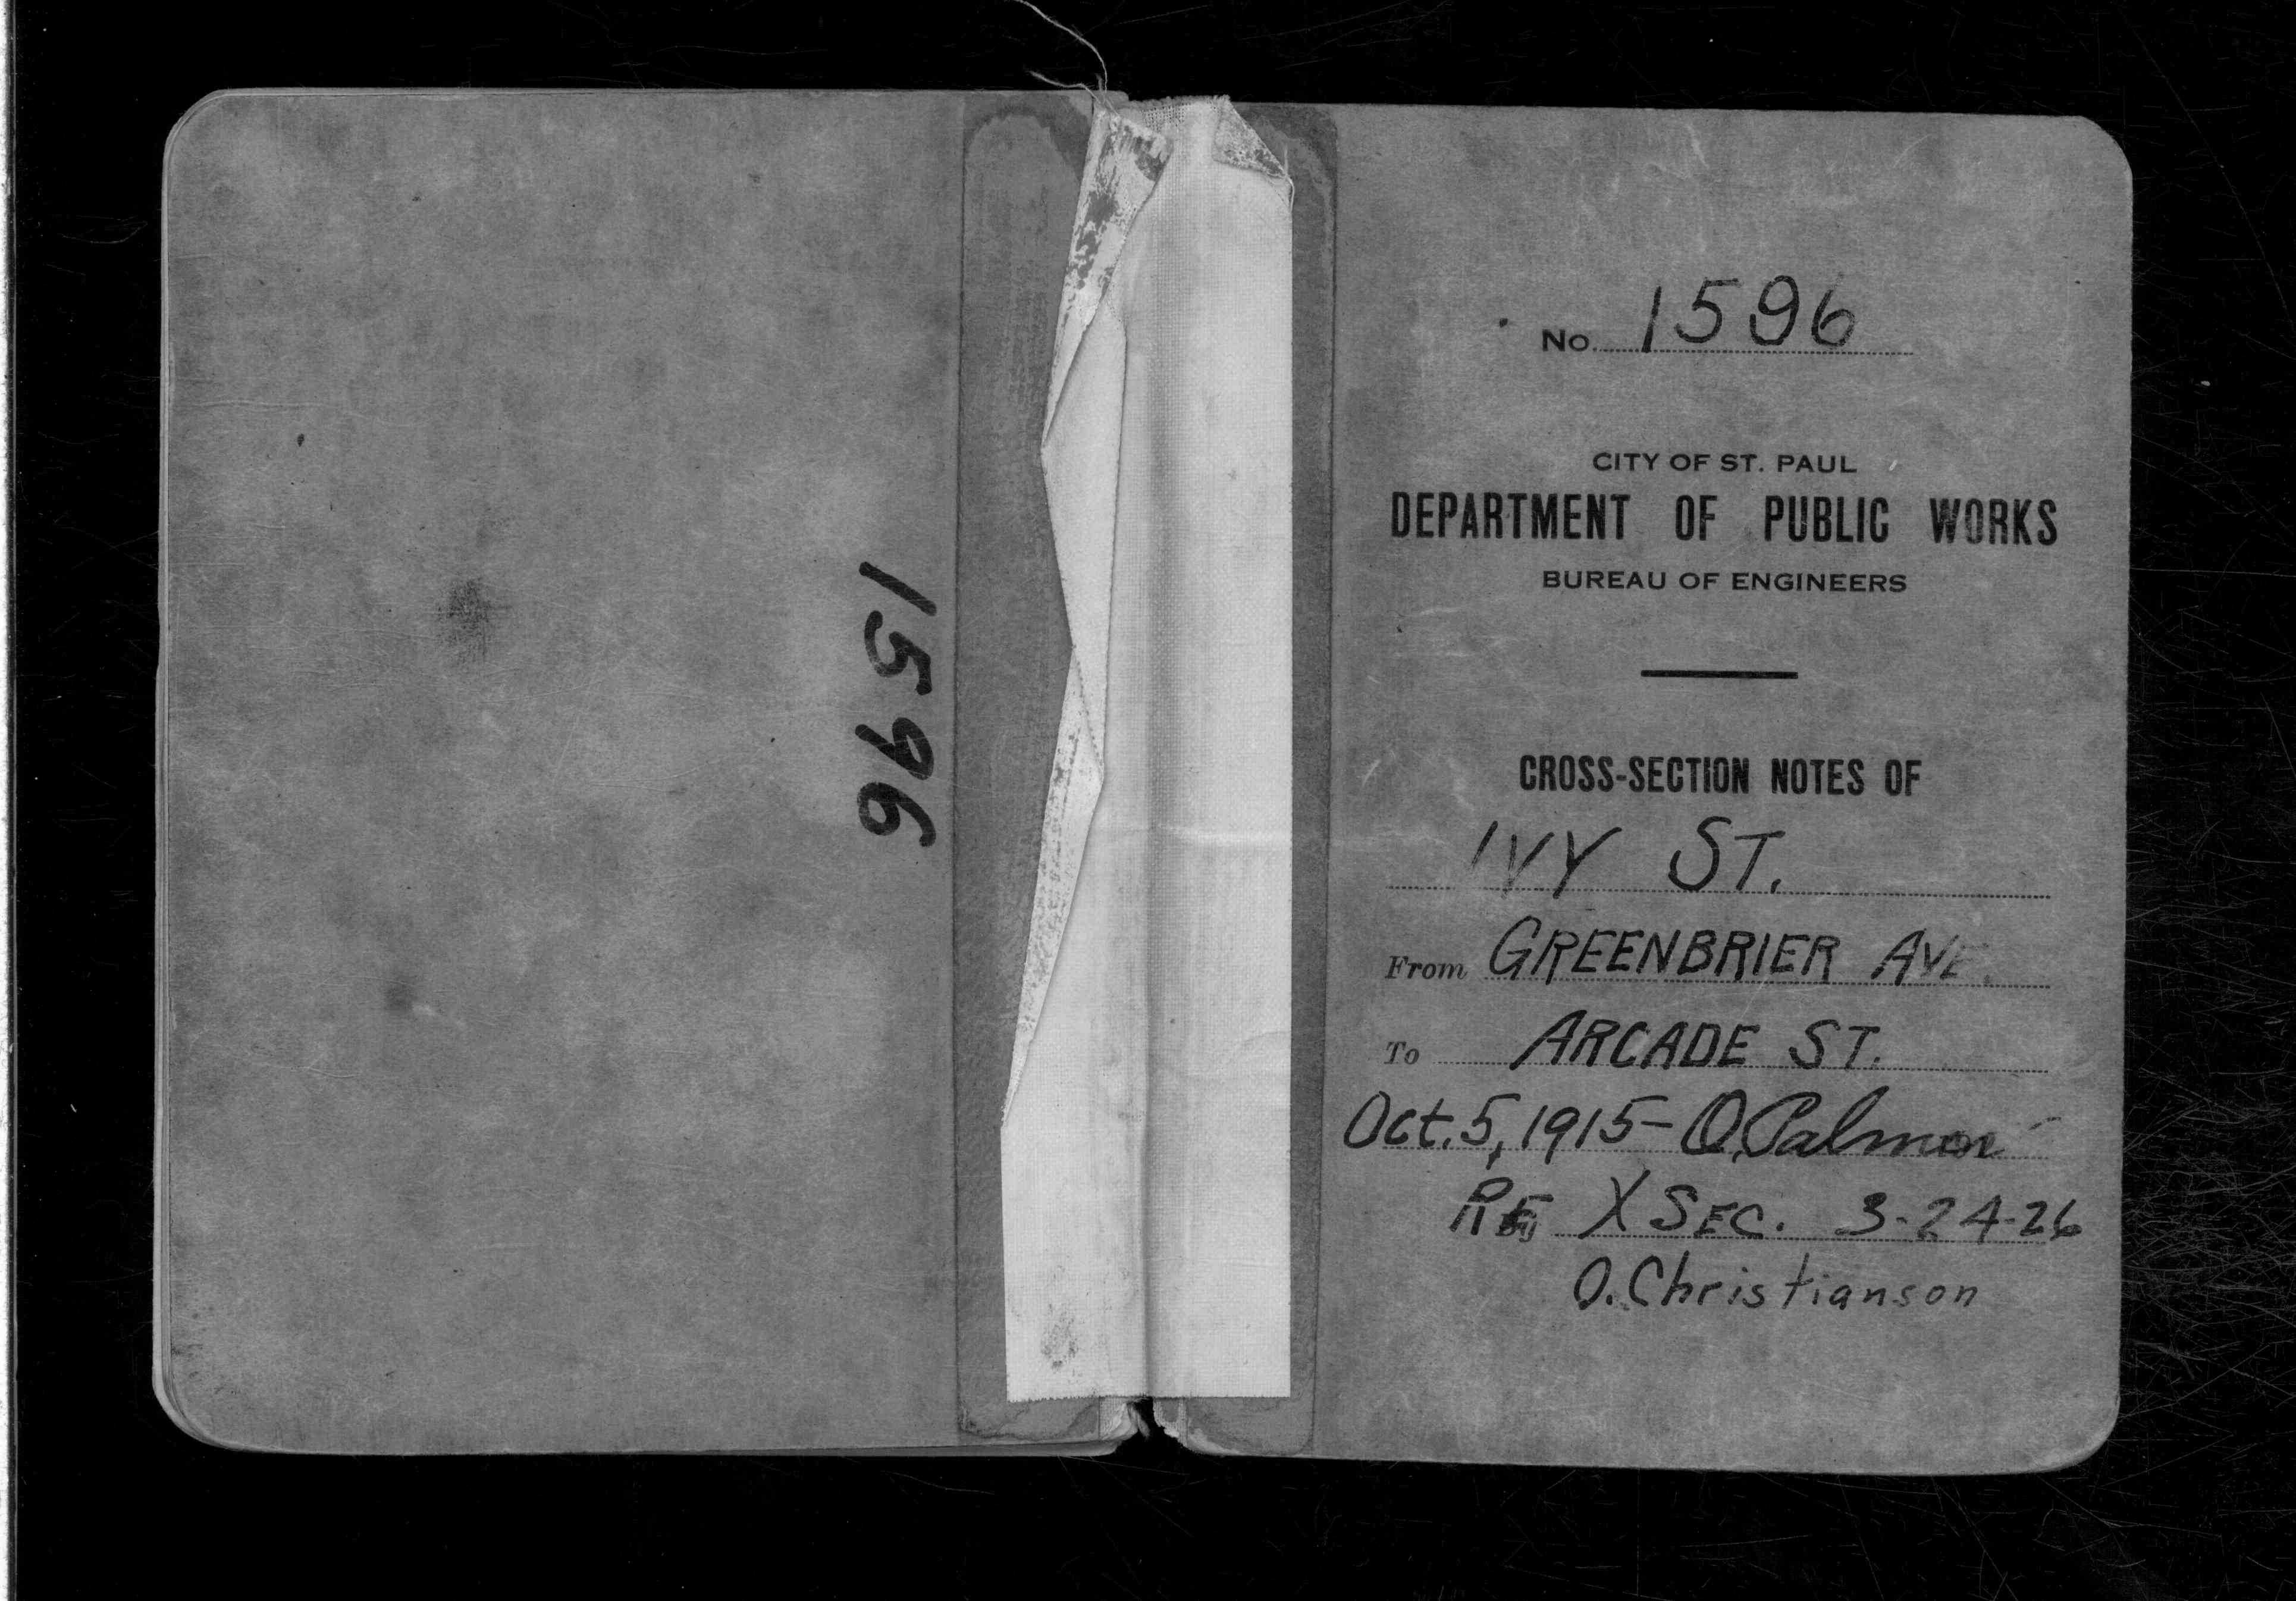 1596
No. 1596
CITY OF ST. PAUL
DEPARTMENT OF PUBLIC WORKS
BUREAU OF ENGINEERS
CROSS-SECTION NOTES OF
IVY ST.
From GREENBRIER AVE.
To ARCADE ST.
Oct. 5, 1915 - O. Palmer
RE X SEC. 3-24-26
O. Christianson